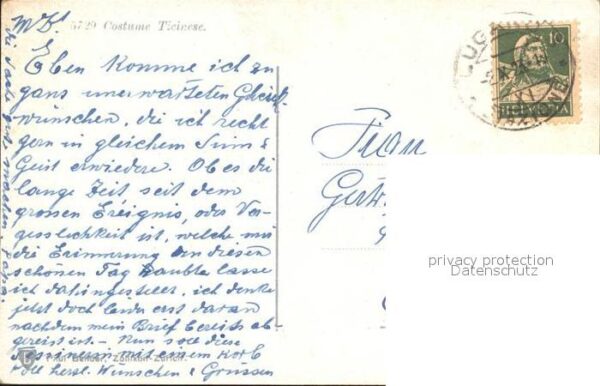 M. Ds!
5729 Costume Ticinese.
Eben komme ich zu
ganz unerwarteten Glück-
wünschen, die ich recht
gern in gleichem Sinn &
Geist erwiedere. Ob es die
lange Zeit seit dem
grossen Ereignis, oder Ver-
gesslichkeit ist, welche mir
die Erinnerung an diesen
schönen Tag raubte lasse
ich dahingestellt, ich denke
jetzt doch leider erst daran
nachdem mein Brief bereits ab-
gereist ist. - Nun soll diese
Tessinerin mit einem Korb
voll herzl. Wünschen & Grüssen
Papa.
Phot Bender, Zollikon-Zürich.
Frau
Gertr
10
HELVETIA
LUGANO
privacy protection
Datenschutz